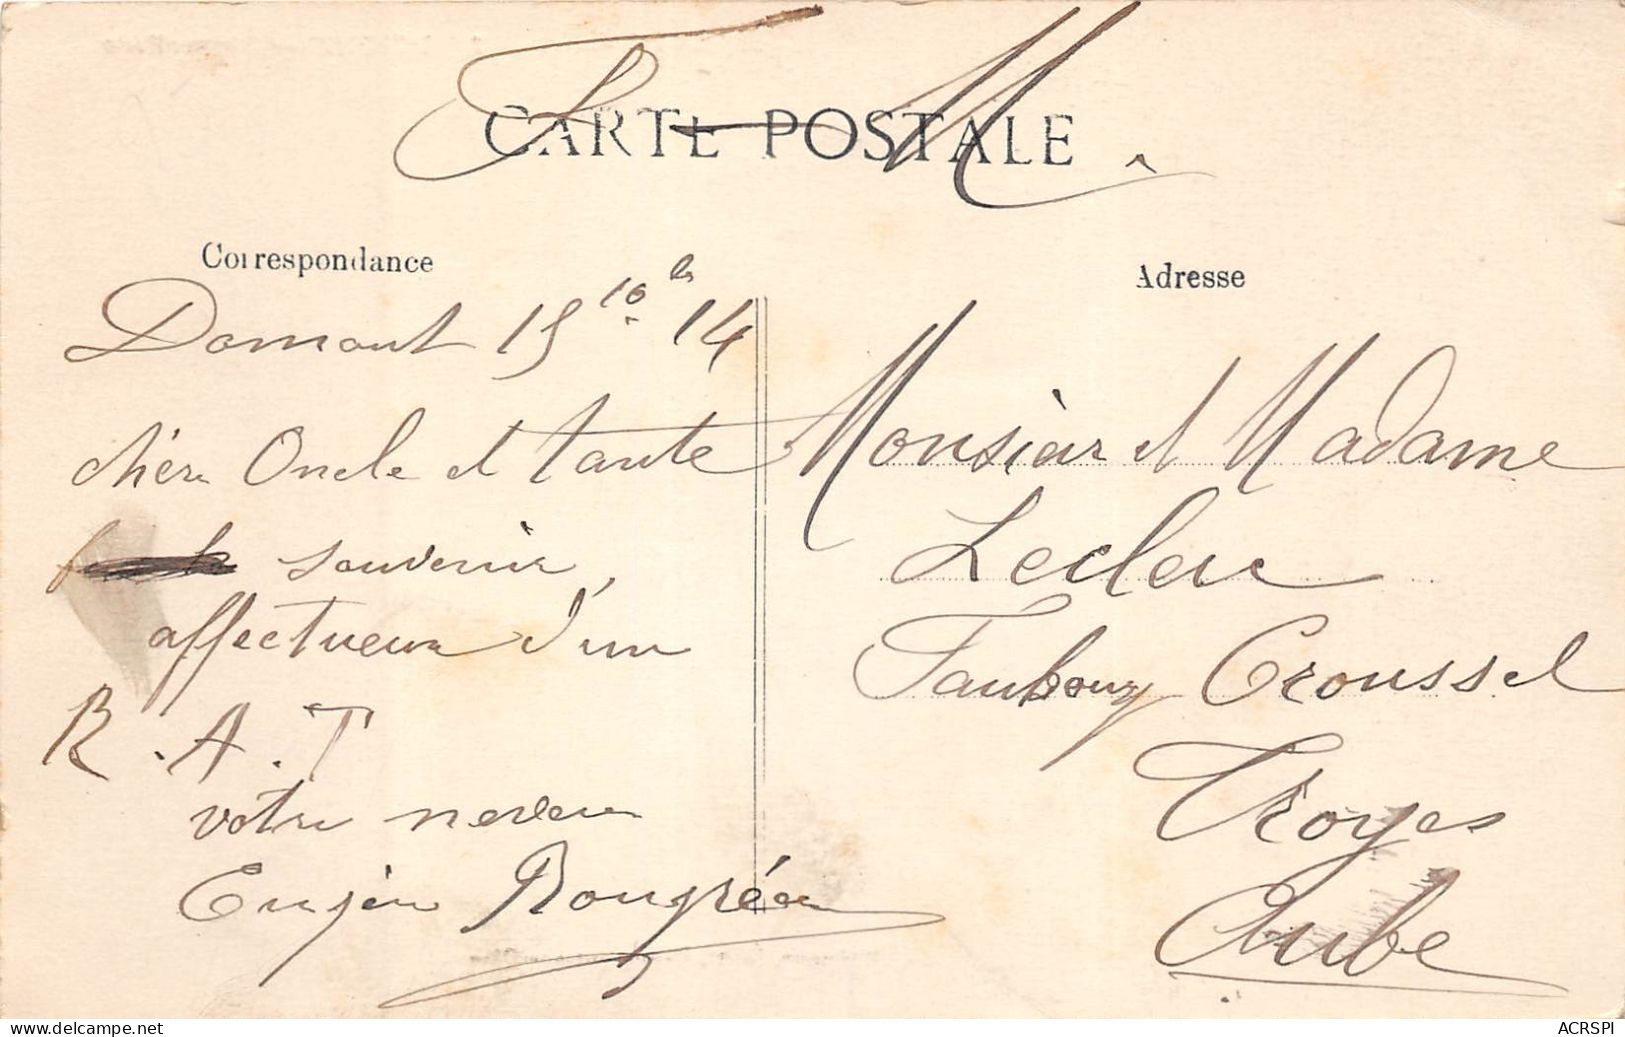 F. M.
CARTE POSTALE
Correspondance
Domont 15 10bre 14
chère Oncle et tante
souvenir
affectueux d'un
R.A.T
votre neveu
Eugène Rougrée
Adresse
Monsieur et Madame
Leclerc
Faubourg Croussel
Troyes
Aube
www.delcampe.net
ACRSPI